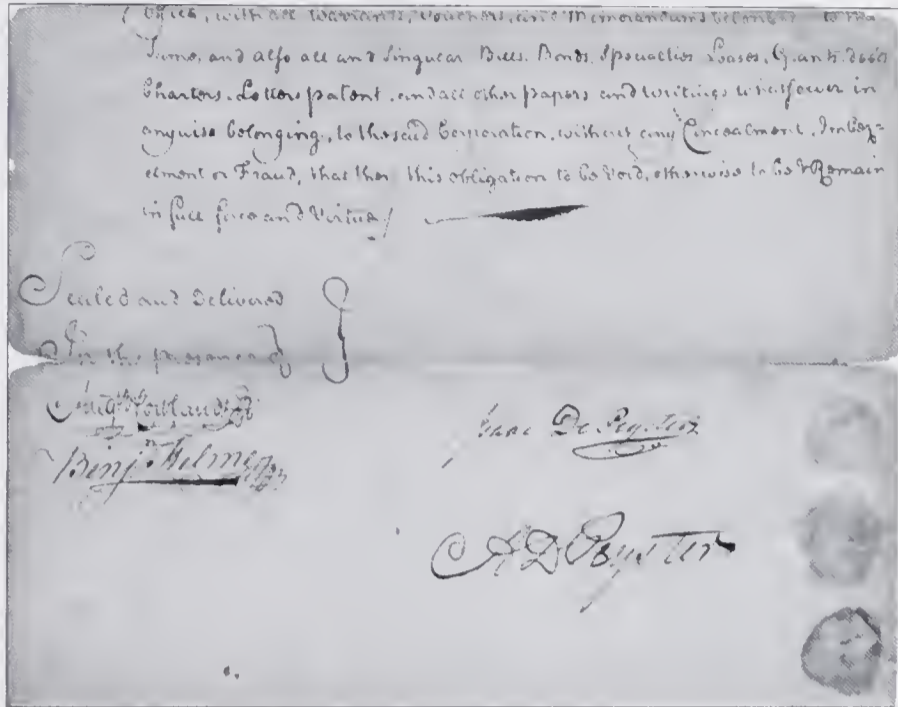 Office, with all Warrants, Vouchers, and Memorandums belonging to the
Same, and also all and Singular Bills, Bonds, Specialties Leases, Grants, deeds
Charters, Letters patent, and all other papers and writings whatsower in
anywise belonging, to the said Corporation, without any Concealment, Imbez=
elment or Fraud, that then this obligation to be Void, otherwise to be & Remain
in full force and Virtue/
Sealed and Delivered
In the presence of
Benj.n Hilmer
Isaac De Peyster
A D Peyster